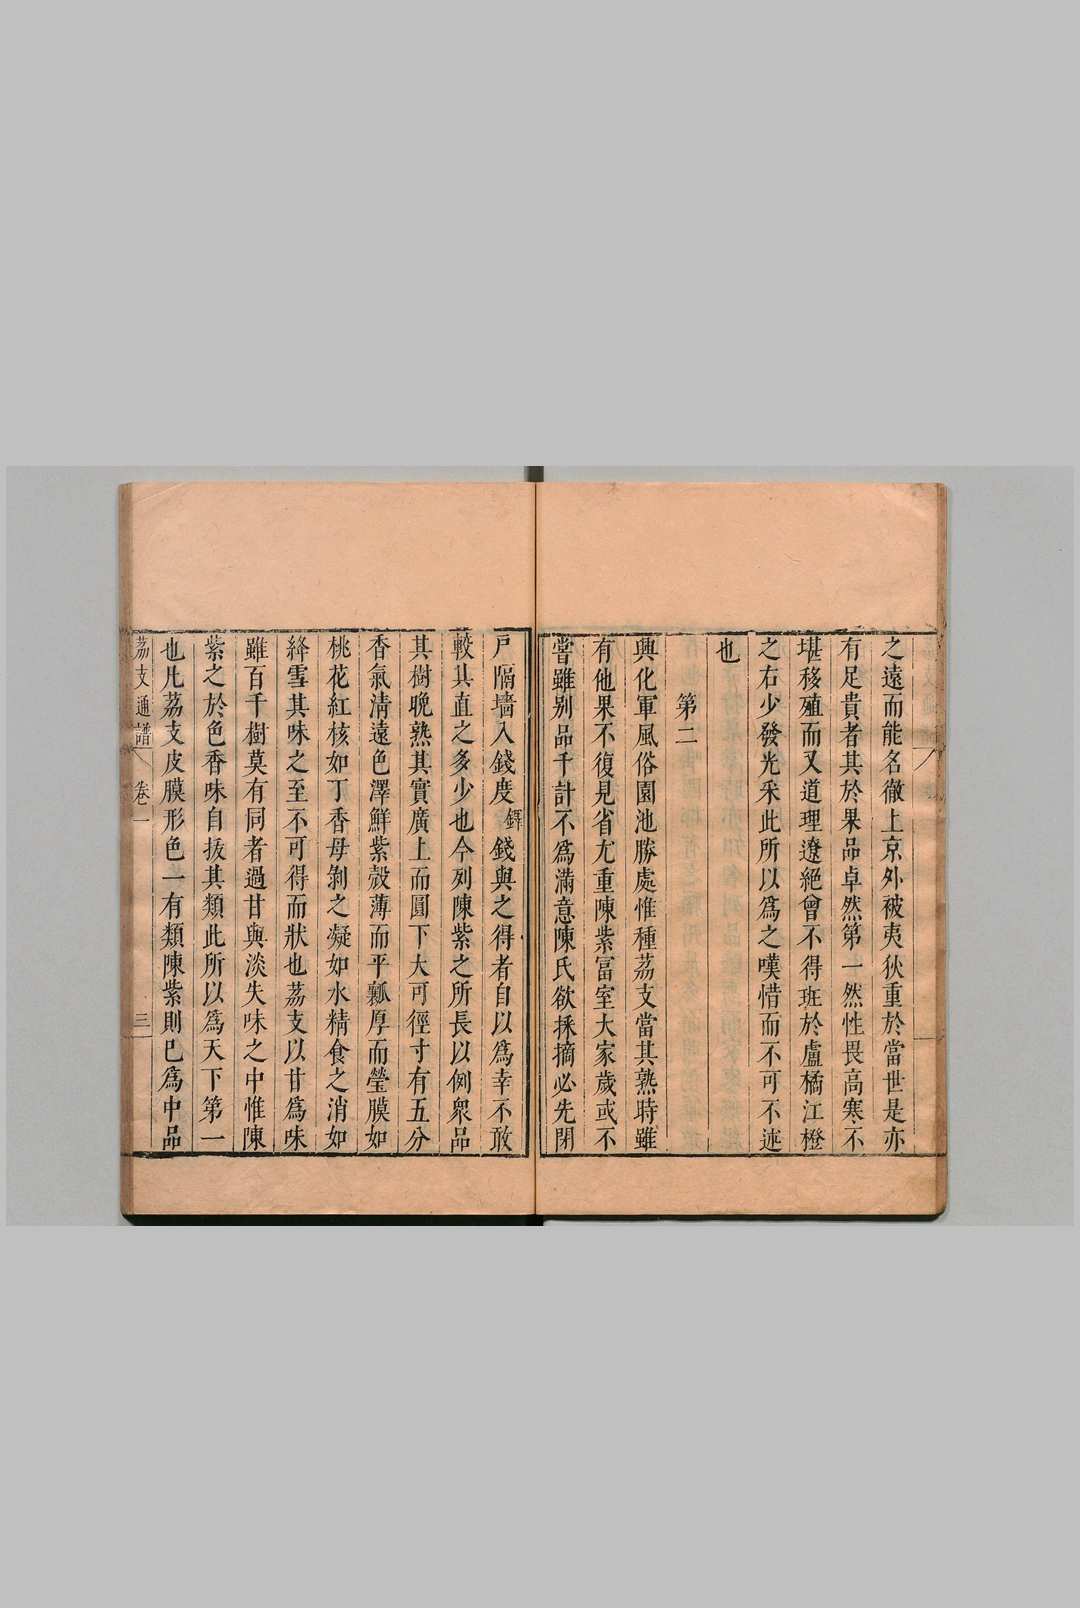 之遠而能名徹上京外被夷狄重於當世是亦
有足貴者其於果品卓然第一然性畏高寒不
堪移殖而又道理遼絕曾不得班於盧橘江橙
之右少發光采此所以爲之嘆惜而不可不述
也
第二
興化軍風俗園池勝處惟種荔支當其熟時雖
有他果不復見省尤重陳紫富室大家歲或不
嘗雖別品千計不爲滿意陳氏欲採摘必先閉
戶隔墻入錢度錢與之得者自以爲幸不敢
較其直之多少也今列陳紫之所長以例衆品
其樹晚熟其實廣上而圓下大可徑寸有五分
香氣清遠色澤鮮紫殼薄而平瓤厚而瑩膜如
桃花紅核如丁香母剝之凝如水精食之消如
絳雪其味之至不可得而狀也荔支以甘爲味
雖百千樹莫有同者過甘與淡失味之中惟陳
紫之於色香味自拔其類此所以爲天下第一
也凡荔支皮膜形色一有類陳紫則已爲中品
荔支通譜 卷一 三